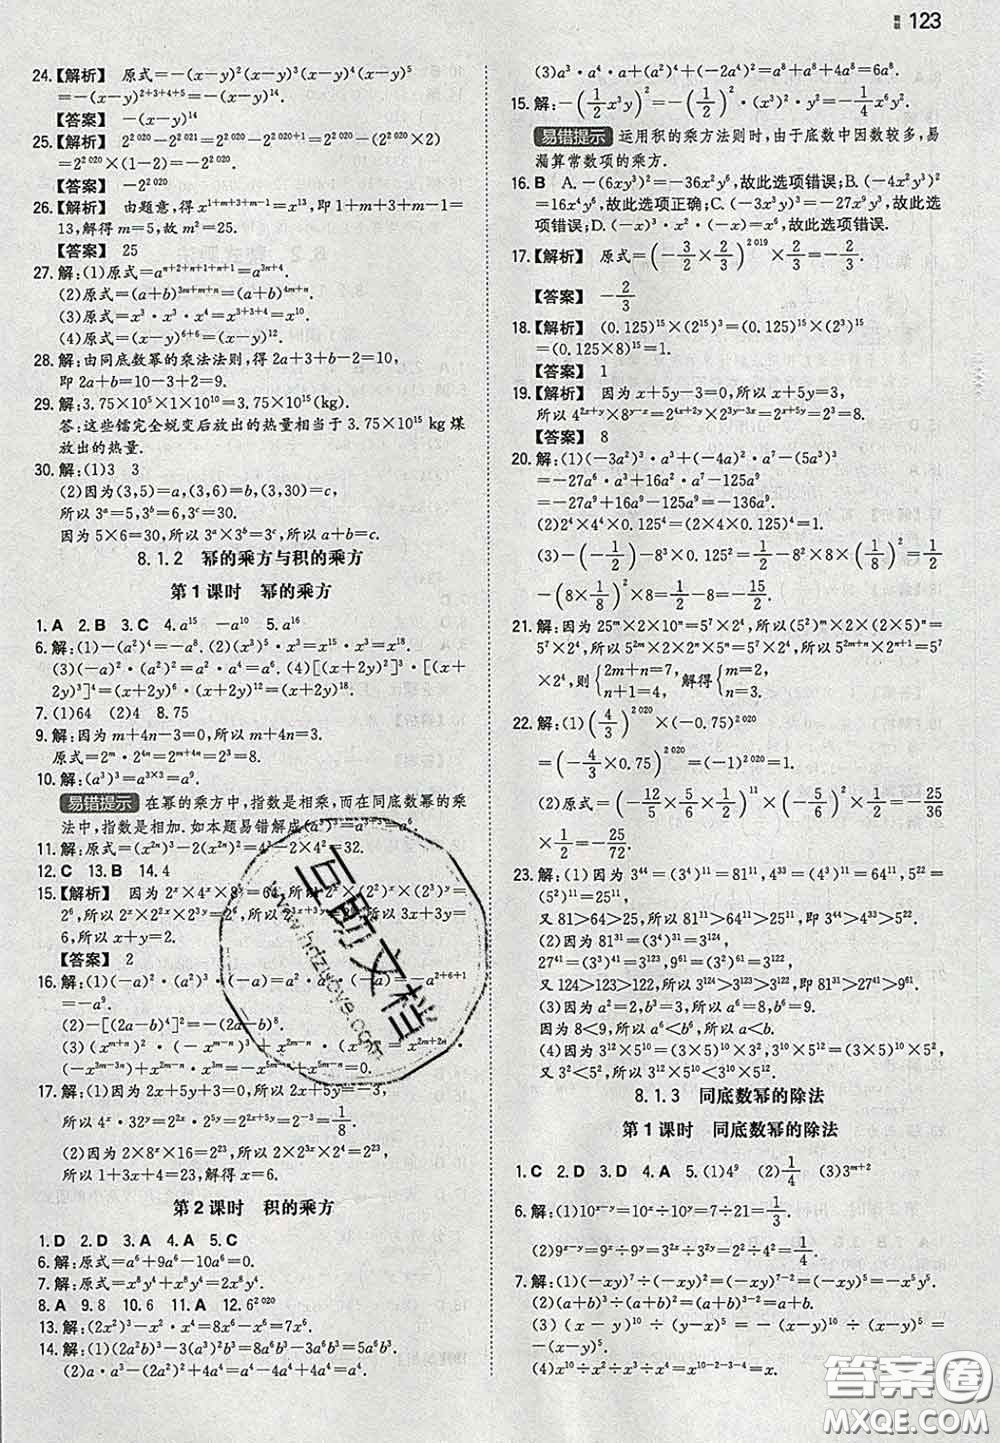 123
24.【解析】 原式=-(x-y)²(x-y)³(x-y)⁴(x-y)⁵
=-(x-y)²⁺³⁺⁴⁺⁵=-(x-y)¹⁴.
【答案】 -(x-y)¹⁴
25.【解析】 2²⁰²⁰-2²⁰²¹=2²⁰²⁰-2²⁰²⁰⁺¹=2²⁰²⁰-(2²⁰²⁰×2)
=2²⁰²⁰×(1-2)=-2²⁰²⁰
【答案】 -2²⁰²⁰
26.【解析】 由题意,得x¹⁺ᵐ⁺³⁺ᵐ⁻¹=x¹³,即1+m+3+m-1=
13,解得m=5,故m²=25.
【答案】 25
27.解:(1)原式=aⁿ⁺²⁺ⁿ⁺¹⁺ⁿ⁺¹=a³ⁿ⁺⁴.
(2)原式=(a+b)³ᵐ⁺ᵐ⁺ⁿ=(a+b)⁴ᵐ⁺ⁿ.
(3)原式=x³·x³·x⁴=x³⁺³⁺⁴=x¹⁰.
(4)原式=(x-y)⁶⁺⁶=(x-y)¹².
28.解:由同底数幂的乘法法则,得2a+3+b-2=10,
即2a+b=10-3+2=9.
29.解:3.75×10⁵×1×10¹⁰=3.75×10¹⁵(kg).
答:这些镭完全蜕变后放出的热量相当于3.75×10¹⁵ kg煤
放出的热量.
30.解:(1)3 3
(2)因为(3,5)=a,(3,6)=b,(3,30)=c,
所以3ᵃ=5,3ᵇ=6,3ᶜ=30.
因为5×6=30,所以3ᵃ×3ᵇ=3ᶜ,所以a+b=c.
8.1.2 幂的乘方与积的乘方
第1课时 幂的乘方
1.A 2.B 3.C 4.a¹⁵ -a¹⁰ 5.a¹⁶
6.解:(1)-(a²)⁴=-a⁸. (2)(x³)⁵·x³=x¹⁵·x³=x¹⁸.
(3)(-a)²·(a²)²=a²·a⁴=a⁶. (4)[(x+2y)²]³·[(x+
2y)³]⁴=(x+2y)⁶·(x+2y)¹²=(x+2y)¹⁸.
7.(1)64 (2)4 8.75
9.解:因为m+4n-3=0,所以m+4n=3.
原式=2ᵐ·2⁴ⁿ=2ᵐ⁺⁴ⁿ=2³=8.
10.解:(a³)³=a³ˣ³=a⁹.
易错提示 在幂的乘方中,指数是相乘,而在同底数幂的乘
法中,指数是相加.如本题易错解成(a³)³=a³⁺³=a⁶.
11.解:原式=(x²ⁿ)³-2(x²ⁿ)²=4³-2×4²=32.
12.C 13.B 14.4
15.【解析】 因为2ˣ×4ˣ×8ʸ=64,所以2ˣ×2²ˣ×2³ʸ=
2⁶,所以2ˣ×2²ˣ×2³ʸ=2³ˣ⁺³ʸ=2⁶,所以3x+3y=
6,所以x+y=2.
【答案】 2
16.解:(1)(-a)²·(-a)·(-a)⁶=a²·(-a)·a⁶=-a²⁺⁶⁺¹
=-a⁹.
(2)-[(2a-b)⁴]²=-(2a-b)⁸.
(3)(xᵐ⁺ⁿ)²·(-xᵐ⁻ⁿ)³+x²ᵐ⁻ⁿ·(-x³)ᵐ=x²ᵐ⁺²ⁿ·
(-x³ᵐ⁻³ⁿ)+
17.解:(1)因为2x+5y+3=0,所以2x+5y=-3,
所以4ˣ·32ʸ=2²ˣ·2⁵ʸ=2²ˣ⁺⁵ʸ=2⁻³=1/8.
(2)因为2×8ˣ×16=2²³,所以2×2³ˣ×2⁴=2²³,
所以1+3x+4=23,解得x=6.
第2课时 积的乘方
1.D 2.D 3.A 4.A 5.C
6.解:原式=a⁶+9a⁶-10a⁶=0.
7.解:原式=x⁸y⁴+x⁸y⁴=2x⁸y⁴.
8.A 9.8 10.6 11.A 12.6²⁰²⁰
13.解:(2x²)³-x²·x⁴=8x⁶-x⁶=7x⁶.
14.解:(1)(2a²b)³-3(a³)²b³=8a⁶b³-3a⁶b³=5a⁶b³.
(2)a·a²·a+(-2a²)²-4a⁴=a⁴+4a⁴-4a⁴=a⁴.
(3)a³·a⁴·a+(a²)⁴+(-2a⁴)²=a⁸+a⁸+4a⁸=6a⁸.
15.解:-(1/2 x³y)²=-(1/2)²·(x³)²·y²=-1/4 x⁶y².
易错提示 运用积的乘方法则时,由于底数中因数较多,易
漏算常数项的乘方.
16.B A.-(6xy³)²=-36x²y⁶,故此选项错误;B.(-4x²y)²=
16x⁴y²,故此选项正确;
17.【解析】 原式=(-3/2×2/3)²⁰¹⁹×2/3=-2/3.
【答案】 -2/3
18.【解析】 (0.125)¹⁵×(2¹⁵)³=(0.125)¹⁵×(2³)¹⁵
=(0.125×8)¹⁵=1.
【答案】 1
19.【解析】 因为x+5y-3=0,所以x+5y=3,
所以4²ˣ⁺ʸ×8ʸ⁻ˣ=2⁴ˣ⁺²ʸ×2³ʸ⁻³ˣ=2ˣ⁺⁵ʸ=2³=8.
【答案】 8
20.解:(1)(-3a²)³·a³+(-4a)²·a⁷-(5a³)³
=-27a⁶·a³+16a²·a⁷-125a⁹
=-27a⁹+16a⁹-125a⁹=-136a⁹.
(2)2⁴×4⁴×0.125⁴=(2×4×0.125)⁴=1.
21.解:因为25ᵐ×2×10ⁿ=5⁷×2⁴,所以(5²)ᵐ×2×(2×5)ⁿ=
5⁷×2⁴,所以5²ᵐ×2×2ⁿ×5ⁿ=5²ᵐ⁺ⁿ×2ⁿ⁺¹=5⁷
×2⁴,则{2m+n=7, n+1=4, 解得{m=2, n=3.
22.解:(1)(4/3)²⁰²⁰×(-0.75)²⁰²⁰
=(-4/3×0.75)²⁰²⁰=(-1)²⁰²⁰=1.
(2)原式=(-12/5×5/6×1/2)¹¹×(-5/6)²×(-1/2)³=-25/36
×1/2=-25/72.
23.解:(1)因为81¹¹=(3⁴)¹¹
又81>64>25,所以81¹¹>64¹¹>25¹¹,即3⁴⁴>4³³>5²².
(2)因为81³¹=(3⁴)³¹=3¹²⁴,
27⁴¹=(3³)⁴¹=3¹²³,9⁶¹=(3²)⁶¹=3¹²²,
又124>123>122,所以3¹²⁴>3¹²³>3¹²²,即81³¹>27⁴¹>9⁶¹.
(3)因为a²=2,b³=3,所以a⁶=8,b⁶=9,
因为8<9,所以a⁶<b⁶,所以a<b.
(4)因为3¹²×5¹⁰=(3×5)¹⁰×3²,3¹⁰×5¹²=(3×5)¹⁰×5²,又
3²<5²,所以3¹²×5¹⁰<3¹⁰×5¹².
8.1.3 同底数幂的除法
第1课时 同底数幂的除法
1.C 2.D 3.D 4.A 5.(1)4⁹ (2)1/4 (3)3ᵐ⁺²
6.解:(1)10ˣ⁻ʸ=10ˣ÷10ʸ=7÷21=1/3.
(2)9ˣ⁻ʸ=9ˣ÷9ʸ=3²ˣ÷3²ʸ=(3ˣ)²÷(3ʸ)²=2²÷4²=1/4.
7.解:(1)(-xy)⁷÷(-xy)²=(-xy)⁷⁻²=(-xy)⁵=-x⁵y⁵.
(3)(x-y)⁶÷(y-x)³÷(x-y)=-(x-y)⁶÷(x-y)³÷
(4)x¹⁰÷x²÷x³÷x⁴=x¹⁰⁻²⁻³⁻⁴=x.
互助文档
www.hdzuoye.com
答案圈
MXQE.COM